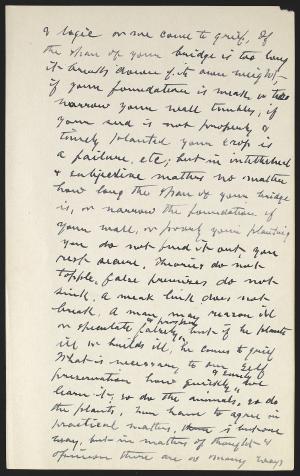 & logic or we come to grief. If
the span of your bridge is too long
it breaks down of its own weight,
if your foundation is weak or too
narrow your wall tumbles, if
your seed is not properly &
timely planted your crop is
a failure, etc; but in intellectual
& subjective matters no matter
how long the span of your bridge
is, or narrow the foundation of
your wall, or poorly your planting
you do not find it out, you
rest secure. Theories do not
topple, false premises do not
sink, a weak link does not
break. A man may reason ill
or speculate falsely & prosper, but if he plants
ill or builds ill, he comes to grief
What is necessary to our self
preservation how quickly & surely we
learn it, so do the animals, so do
the plants, men have to agree in
practical matters, there is but one
way, but in matters of thought &
opinion there are as many ways